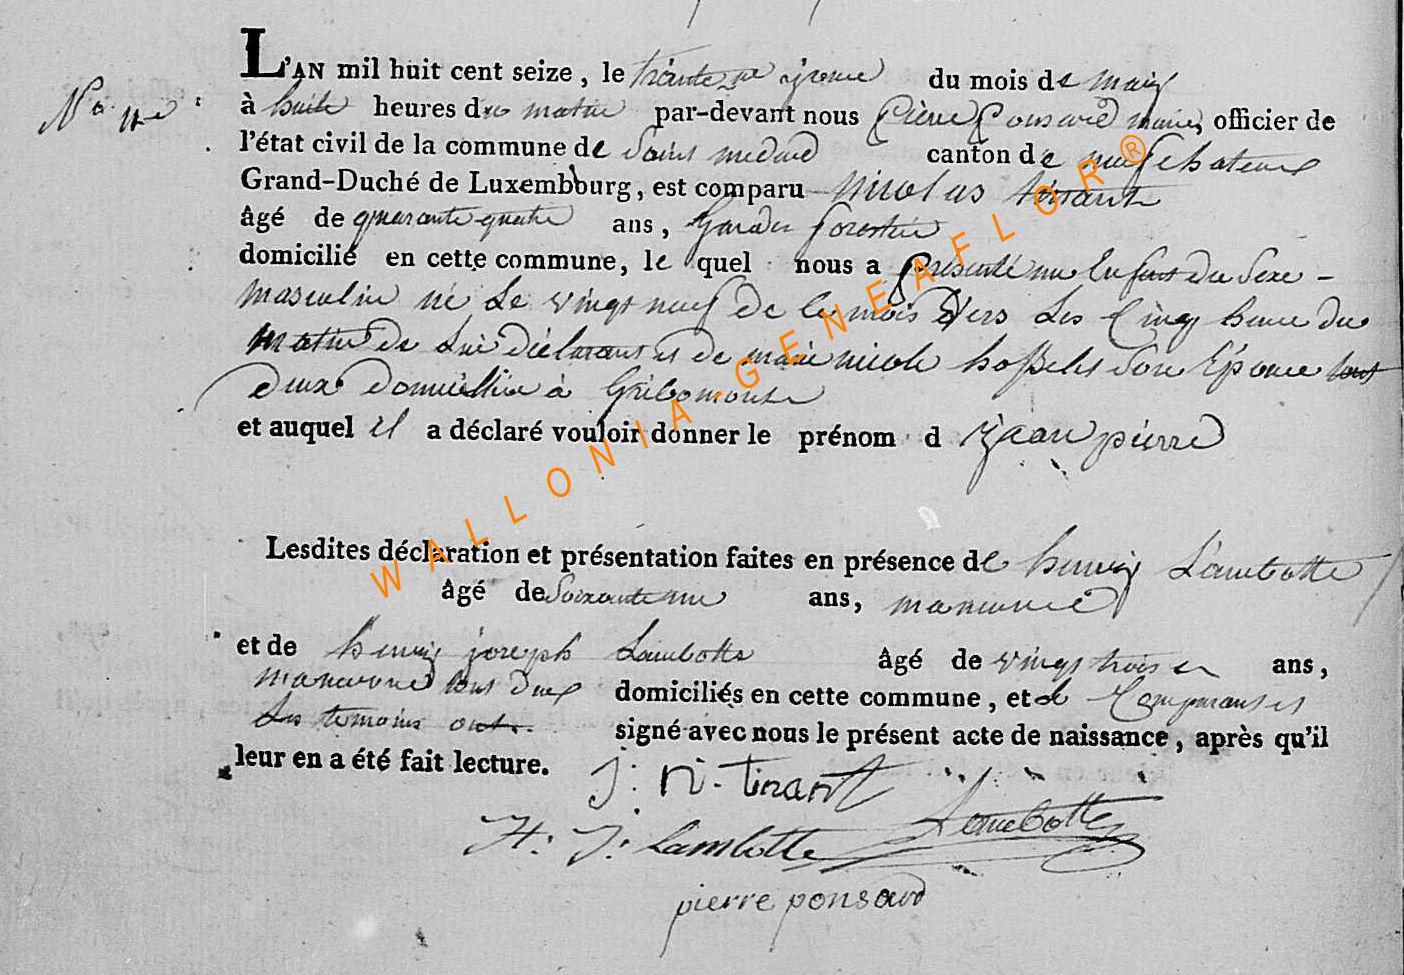 L'AN mil huit cent seize, le trante une jeme du mois de maiy
No 11e
à huite heures du matin par-devant nous Pierre Ponsard maire officier de
l'état civil de la commune de Saint medard canton de neufchateau
Grand-Duché de Luxembourg, est comparu Nicolas tinant
âgé de quarante quatre ans, Garde forestier
domicilié en cette commune, le quel nous a presenté un Enfant du Sexe -
masculin né Le vingt neuf de ce mois Vers Les Cinq heure du
matin de Lui déclarant et de marie nicole hoßelet Son Epouse tout
deux Domicillié à Gribomont
et auquel il a déclaré vouloir donner le prénom d jean pierre
Lesdites déclaration et présentation faites en présence de henriy Lambotte
âgé de Soixante une ans, manouvrié
et de henriy joseph Lambotte âgé de vingt trois ans,
manouvrié tous deux domiciliés en cette commune, et le Comparant et
Les temoins ont signé avec nous le présent acte de naissance, après qu'il
leur en a été fait lecture.
J: N- tinant
Lambotte
H: J: Lambotte
pierre ponsard
WALLONIA-GENEAFLOR®